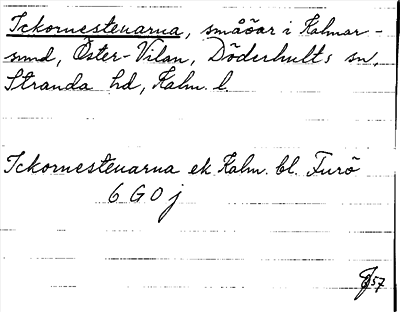 Ickornestenarna, småöar i Kalmar-
sund, Öster-Vilan, Döderhults sn,
Stranda hd, Kalm. l.
Ickornestenarna ek Kalm. bl. Furö
6 G 0 j
57